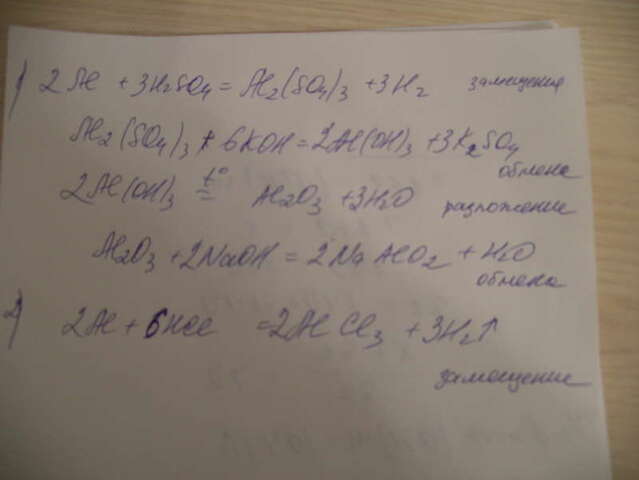 1) 2Al + 3H2SO4 = Al2(SO4)3 + 3H2 замещения
Al2(SO4)3 + 6KOH = 2Al(OH)3 + 3K2SO4
обмена
2Al(OH)3 t° = Al2O3 + 3H2O разложение
Al2O3 + 2NaOH = 2NaAlO2 + H2O
обмена
2) 2Al + 6HCl = 2AlCl3 + 3H2↑
замещение